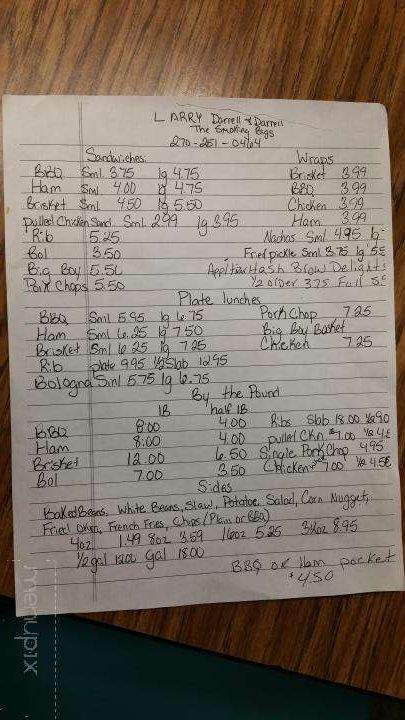 LARRY Darrell & Darrell
The Smoking Pigs
270-251-0404
Sandwiches Wraps
BBQ Sml 3.75 lg 4.75 Brisket 3.99
Ham Sml 4.00 lg 4.75 BBQ 3.99
Brisket Sml 4.50 lg 5.50 Chicken 3.99
Pulled Chicken Sand. Sml 2.99 lg 3.95 Ham 3.99
Rib 5.25 Nachos Sml 4.95 lg
Bol 3.50 Fried pickle Sml 3.75 lg
Big Boy 5.50 Hash Brow Delights
Pork Chops 5.50 1/2 order 3.75 Full
Plate lunches
BBQ Sml 5.95 lg 6.75 Pork Chop 7.25
Ham Sml 6.25 lg 7.50 Big Boy Basket
Brisket Sml 6.25 lg 7.25 Chicken 7.25
Rib plate 9.95 1/2 Slab 12.95
Bologna Sml 5.75 lg 6.75
By the Pound
lB half lB
BBQ 8.00 4.00 Ribs Slab 18.00 1/2
Ham 8.00 4.00 pulled Ckn. 7.00 1/2
Brisket 12.00 6.50 Single Pork Chop 4.95
Bol 7.00 3.50 Chicken 7.00 1/2
Sides
Baked Beans, White Beans, Slaw, Potatoe Salad, Corn Nuggets,
Fried Okra, French Fries, Chips (Plain or BBQ)
4oz 1.49 8oz 3.59 16oz 5.25 32oz 8.95
1/2 gal 12.00 gal 18.00
BBQ or Ham pocket
$4.50
menupix